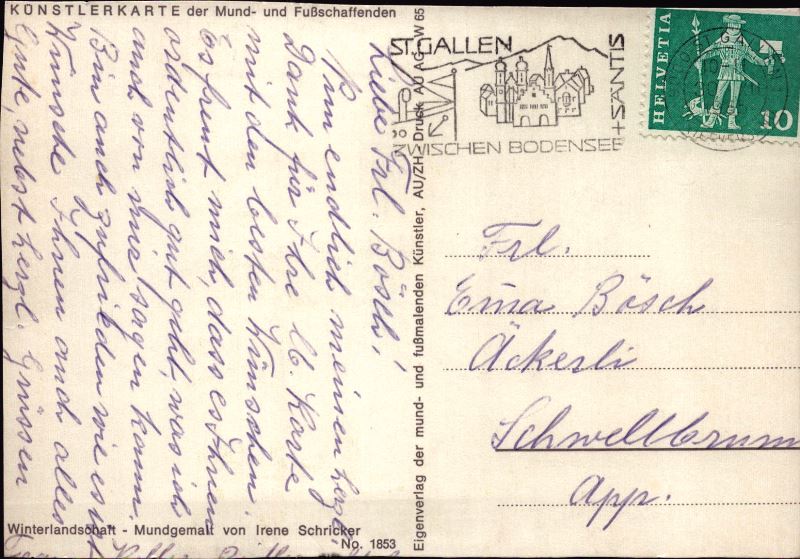 KÜNSTLERKARTE der Mund- und Fußschaffenden
Liebe Frl. Bösch!
Nun endlich meinen herzl.
Dank für Ihre lb. Karte
mit den besten Wünschen.
Es freut mich, dass es Ihnen
ordentlich gut geht, was ich
auch von mir sagen kann.
Bin auch zufrieden wie es ist
Wünsche Ihnen auch alles
Gute, nebst herzl. Grüssen
Winterlandschaft - Mundgemalt von Irene Schricker
No. 1853
Eigenverlag der mund- und fußmalenden Künstler, AU/ZH, Druck AU AG W 65
ST. GALLEN
ZWISCHEN BODENSEE
+ SÄNTIS
HELVETIA
10
Frl.
Ema Bösch
Äckerli
Schwellbrunn
App.